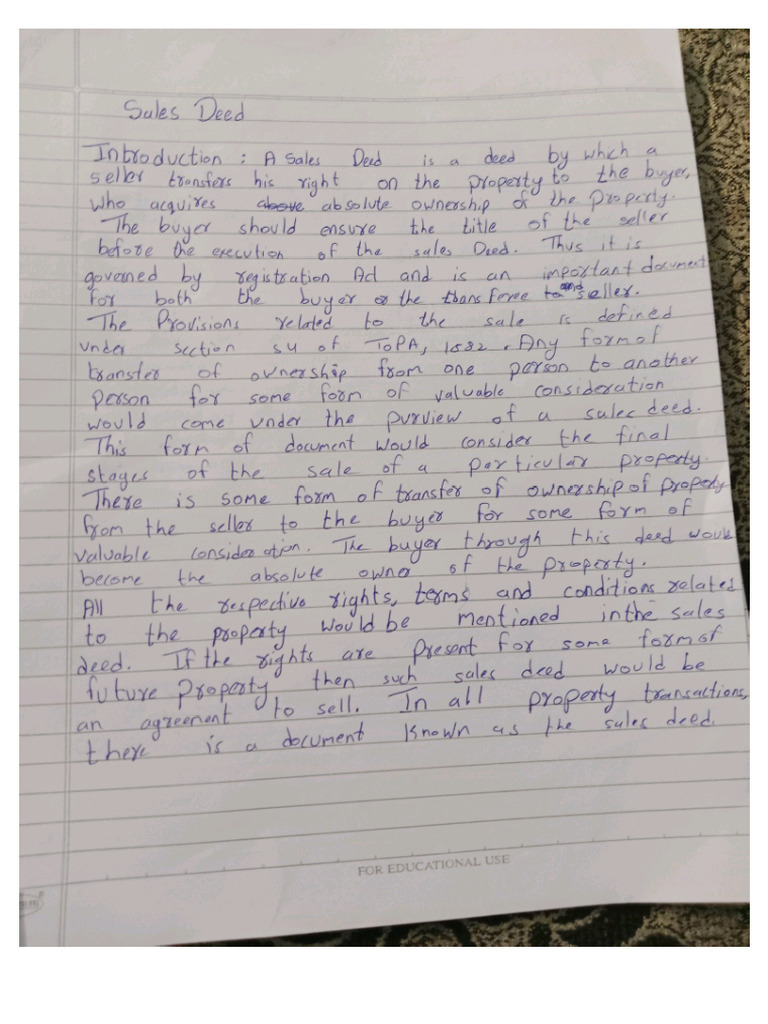 Sales Deed
Introduction : A Sales Deed is a deed by which a
seller transfers his right on the property to the buyer,
who acquires above absolute ownership of the Property.
The buyer should ensure the title of the seller
before the execution of the sales Deed. Thus it is
governed by registration Act and is an important document
for both the buyer or the transferee to and seller.
The Provisions related to the sale is defined
under section 54 of ToPA, 1882. Any form of
transfer of ownership from one person to another
person for some form of valuable consideration
would come under the purview of a sales deed.
This form of document would consider the final
stages of the sale of a particular property.
There is some form of transfer of ownership of property
from the seller to the buyer for some form of
valuable consideration. The buyer through this deed would
become the absolute owner of the property.
All the respective rights, terms and conditions related
to the property would be mentioned in the sales
deed. If the rights are present for some form of
future Property then such sales deed would be
an agreement to sell. In all property transactions,
there is a document known as the sales deed.
FOR EDUCATIONAL USE